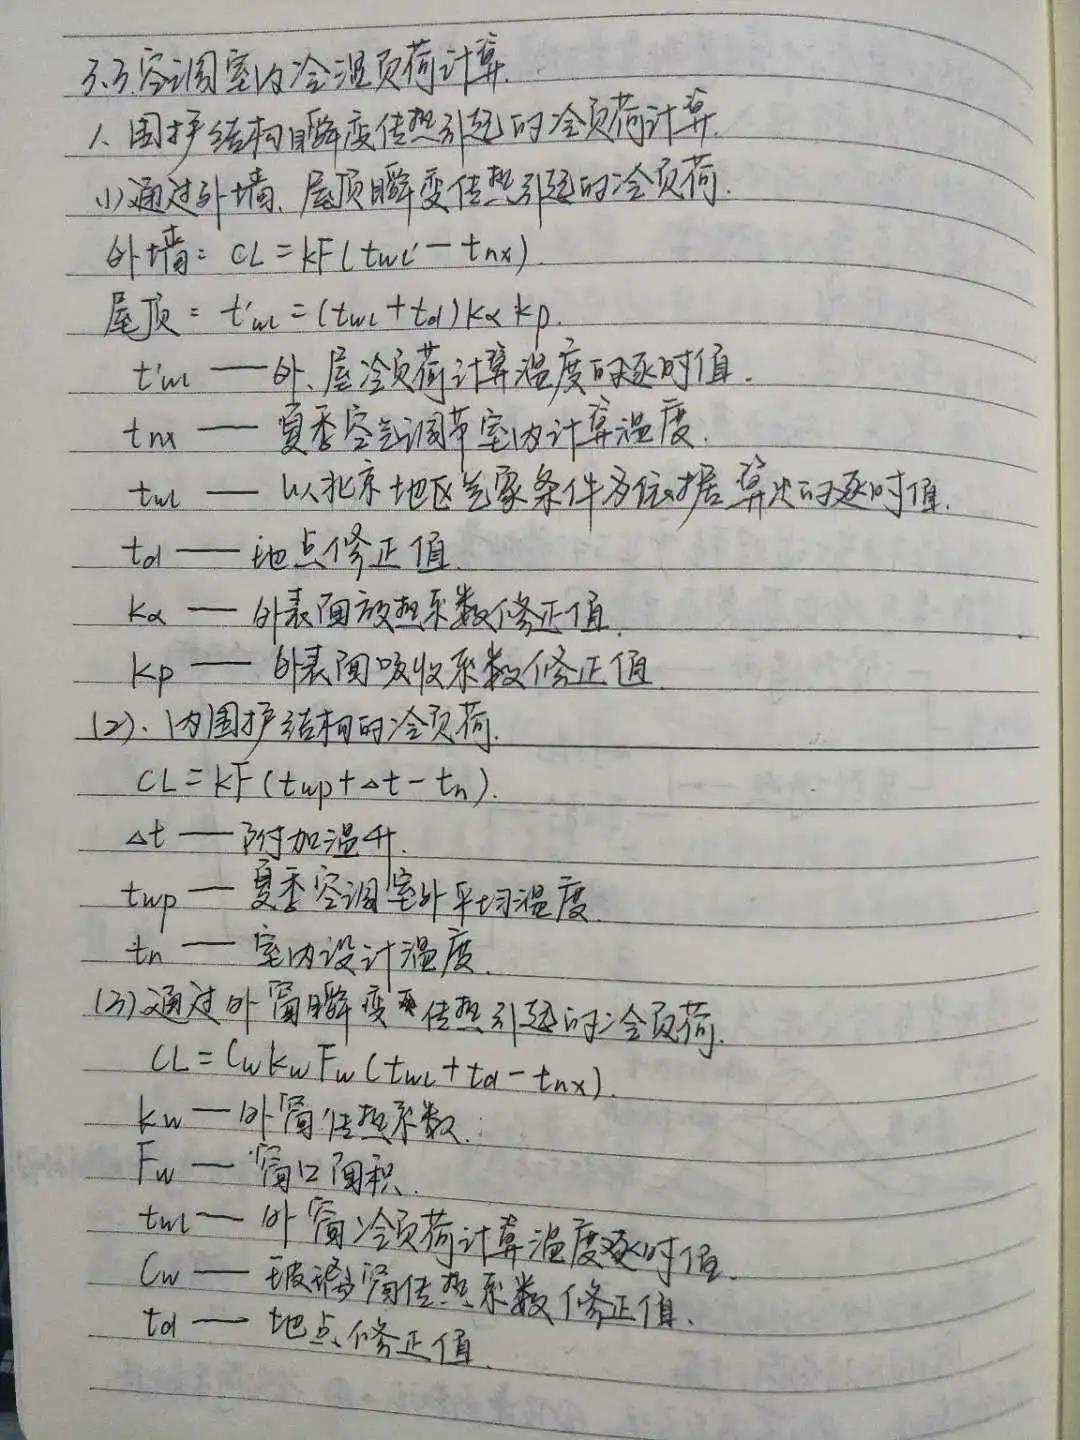 3.3.空调室内冷温负荷计算.
1、围护结构瞬变传热引起的冷负荷计算.
(1)通过外墙、屋顶瞬变传热引起的冷负荷.
外墙: CL=kF(twl'-tnx).
屋顶: t'wl=(twl+td)kα kp.
t'wl——外、屋冷负荷计算温度的逐时值.
tnx——夏季空气调节室内计算温度.
twl——以北京地区气象条件为依据算出的逐时值.
td——地点修正值.
kα——外表面放热系数修正值.
kp——外表面吸收系数修正值.
(2)、内围护结构的冷负荷.
CL=kF(twp+Δt-tn).
Δt——附加温升.
twp——夏季空调室外平均温度.
tn——室内设计温度.
(3)通过外窗瞬变传热引起的冷负荷.
CL=CwkwFw(twl+td-tnx).
kw——外窗传热系数.
Fw——窗口面积.
twl——外窗冷负荷计算温度逐时值.
Cw——玻璃窗传热系数修正值.
td——地点修正值.